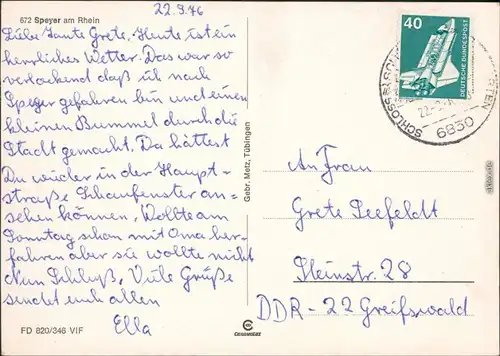 672 Speyer am Rhein
22.9.76
Liebe Tante Grete, Heute ist ein
herrliches Wetter. Das war so
verlockend daß ich nach
Speyer gefahren bin und einen
kleinen Bummel durch die
Stadt gemacht. Da hättest
Du wieder in der Haupt-
straße, Schaufenster an-
sehen können, Wollte am
Sonntag schon mit Oma her-
fahren aber sie wollte nicht
Nun Schluß, Viele Grüße
sendet euch allen
Ella
FD 820/346 VIF
Gebr. Metz, Tübingen
CHROMOLUX
40
DEUTSCHE BUNDESPOST
6830
An Frau
Grete Seefeldt
Steinstr. 28
DDR - 22 Greifswald